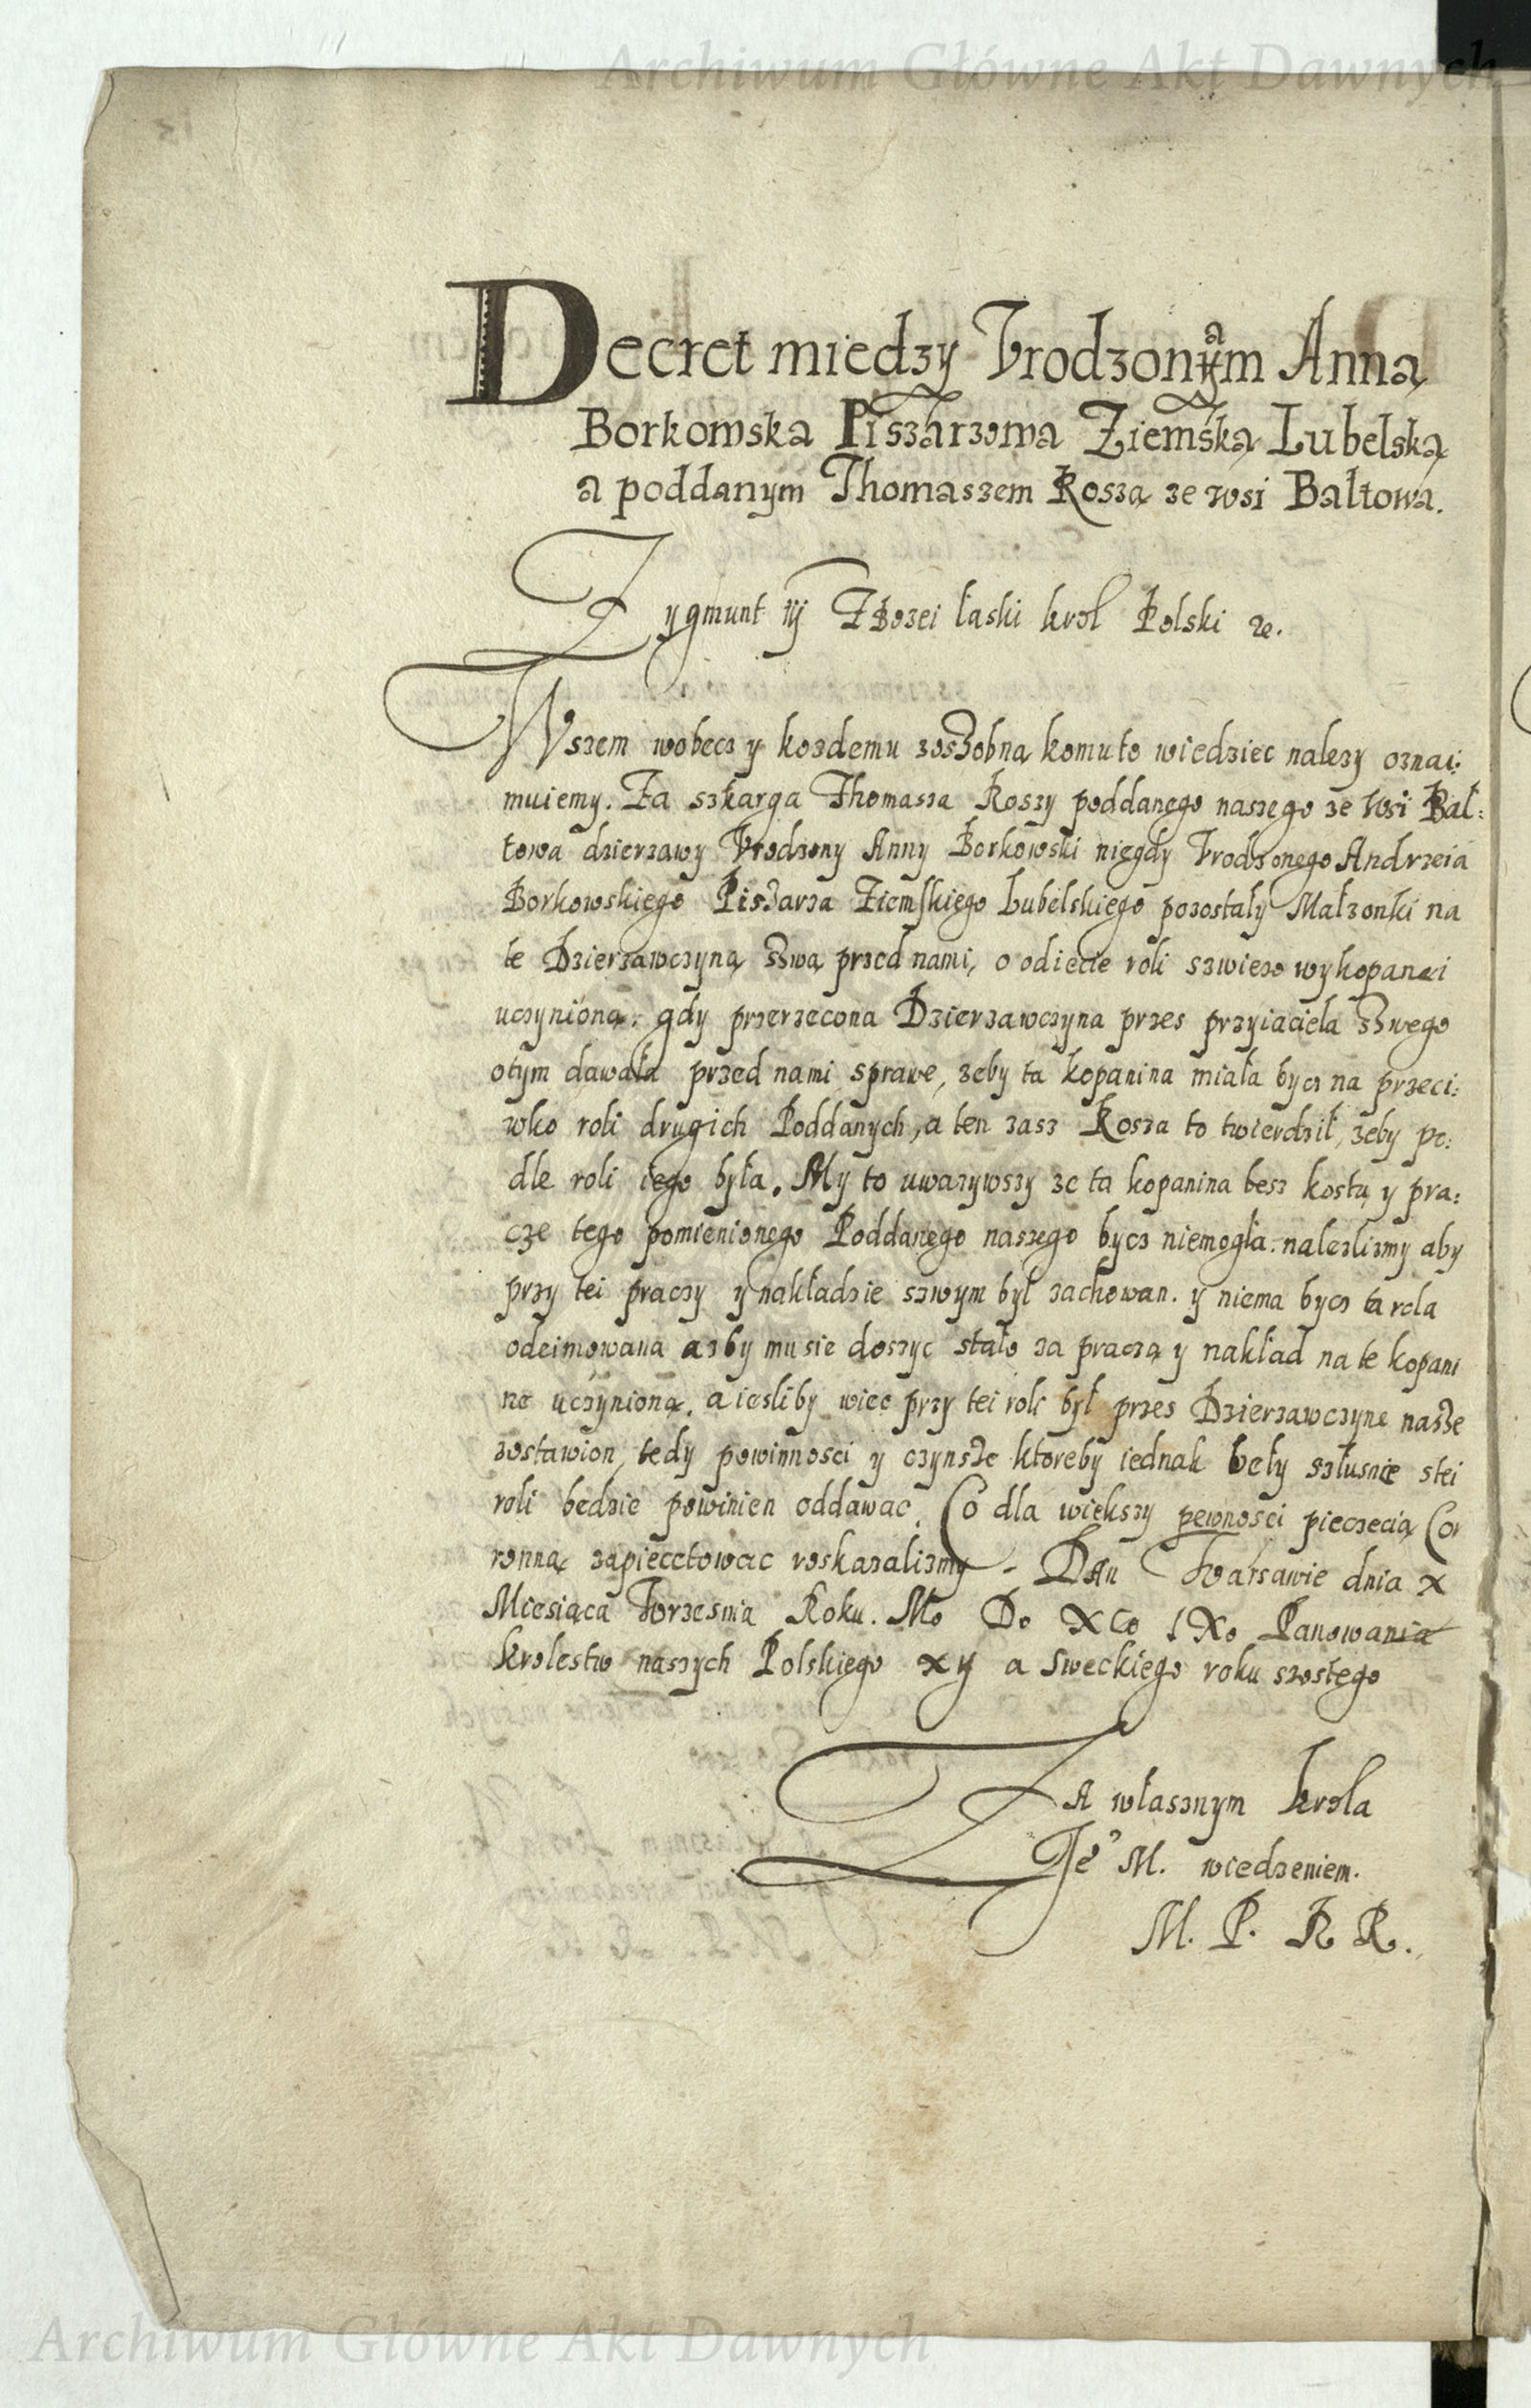 Archiwum Główne Akt Dawnych
Decret miedzy Vrodzonąm Anną
Borkowska Piszarzowa Ziemską Lubelską
a poddanym Thomaszem Koszą ze wsi Baltowa.
Zygmunt iij Z Bozei łaski krol Polski &c.
Wszem wobecz y kozdemu zoszobną komu to wiedziec nalezy oznai:
muiemy. Za szkarga Thomasza Koszy poddanego naszego ze Wsi Bał:
towa dzierzawy Vrodzony Anny Borkowski niegdy Vrodzonego Andrzeia
Borkowskiego Piszarza Ziemskiego Lubelskiego pozostały Małzonki na
te Dzierzawczyną szwą przed nami, o odiecie roli szwiezo wykopanei
uczynioną: gdy przerzecona Dzierzawczyna przes przyiaciela szwego
otym dawała przed nami sprawe, zeby ta kopanina miała bycz na przeci:
wko roli drugich Poddanych, a ten zasz Kosza to twierdził, zeby po:
dle roli iego była. My to uwazywszy ze ta kopanina besz kostu y pra:
cze tego pomienionego Poddanego naszego bycz niemogła: nalezlizmy aby
przy tei praczy y nakładzie szwym był zachowan. y niema bycz ta rola
odeimowana azby musie doszyc stało za praczą y nakład na te kopani
ne uczynioną. a iesliby wiec przy tei roli był przes Dzierzawczyne nasze
zostawion, tedy powinnosci y czynsze ktoreby iednak beły szłusnie stei
roli bedzie powinien oddawac. Co dla wiekszy pewnosci pieczecią Cor
ronną zapiecetowac roskazalizmy - Dan Warsawie dnia X
Miesiąca Wrzesnia Roku. Mo Do XCo IXo Panowania
krolestw naszych Polskiego xij a Sweckiego roku szostego
ZA własznym krola
Jeo M. wiedzeniem.
M. P. R R.
Archiwum Główne Akt Dawnych